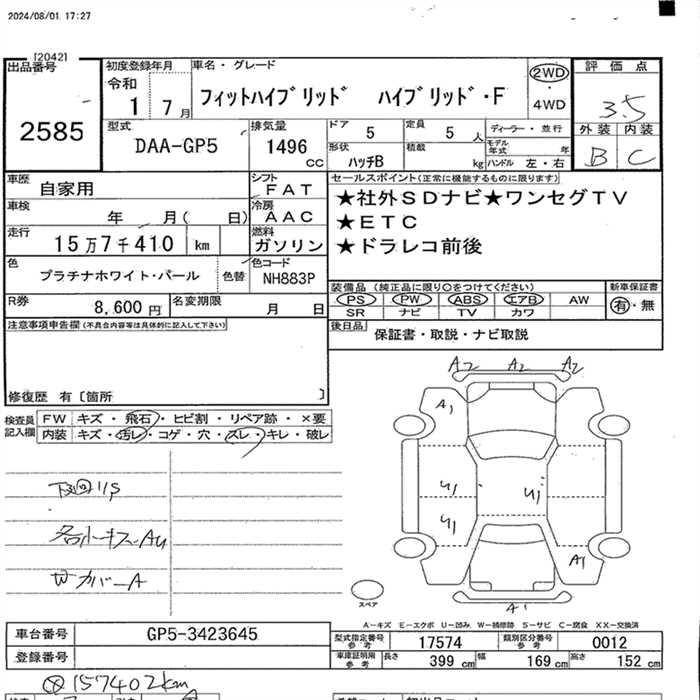 2024/08/01 17:27
[2042]
出品番号
2585
初度登録年月
令和
1 7月
車名・グレード
フィットハイブリッド ハイブリッド・F
2WD
4WD
評価点
3.5
外装 内装
B C
型式
DAA-GP5
排気量
1496
CC
ドア 5
定員 5人
形状 ハッチB
積載 kg
ディーラー・並行
モデル年式 年
ハンドル 左・右
車歴 自家用
シフト FAT
車検 年 月( 日)
冷房 AAC
走行 15万7千410 km
燃料 ガソリン
色 プラチナホワイト・パール
色替
色コード NH883P
R券 8,600円
名変期限 月 日
セールスポイント(正常に機能するものに限ります)
★社外SDナビ★ワンセグTV
★ETC
★ドラレコ前後
装備品(純正品に限り○をつけてください)
PS PW ABS エアB AW
SR ナビ TV カワ
新車保証書
有・無
後日品
保証書・取説・ナビ取説
注意事項申告欄(不具合内容等は具体的に記入して下さい)
修復歴 有〔箇所 〕
検査員記入欄
FW キズ・飛石・ヒビ割・リペア跡・×要
内装 キズ・汚レ・コゲ・穴・スレ・キレ・破レ
各小キズ・AU
WカバーA
A2 A2 A2
A1
U1 U1
U1
A1
A1
スペア
A-キズ E-エクボ U-凹み W-補修跡 S-サビ C-腐食 XX-交換済
車台番号 GP5-3423645
登録番号
型式指定番号参考 17574
類別区分番号参考 0012
車庫証明用参考
長さ 399 cm
幅 169 cm
高さ 152 cm
157402km